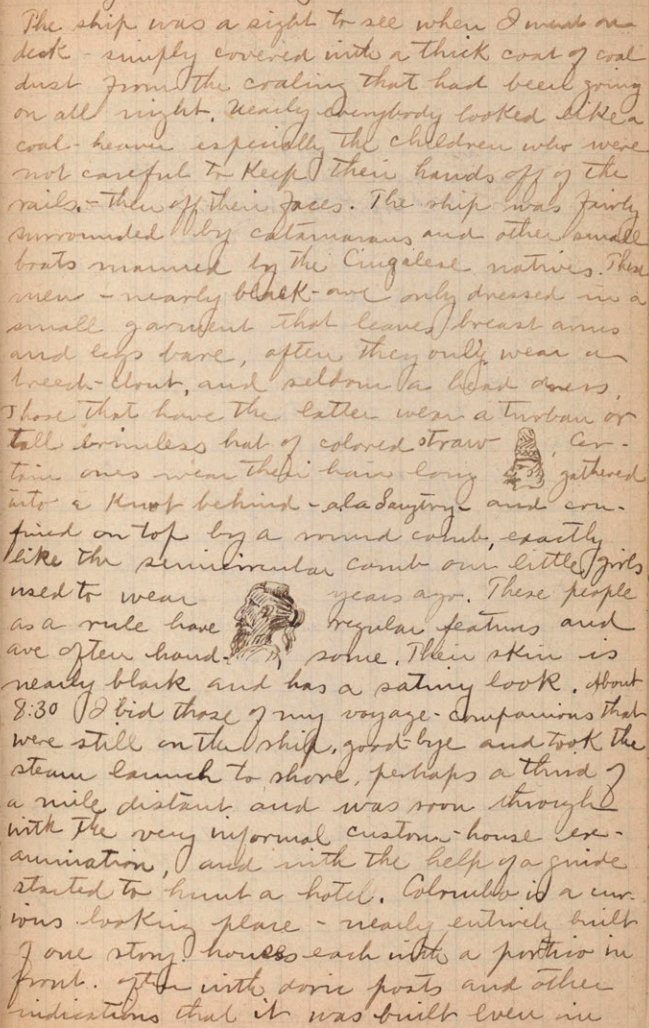 The ship was a sight to see when I went on
deck - simply covered with a thick coat of coal
dust from the coaling that had been going
on all night. Nearly everybody looked like a
coal-heaver especially the children who were
not careful to keep their hands off of the
rails, - then off their faces. The ship was fairly
surrounded by catamarans and other small
boats manned by the Cingalese natives. These
men - nearly black - are only dressed in a
small garment that leaves breast arms
and legs bare, often they only wear a
breech-clout, and seldom a head dress.
Those that have the latter wear a turban or
tall brimless hat of colored straw. Cer-
tain ones wear their hair long gathered
into a knot behind - a la - and con-
fined on top by a round comb, exactly
like the semicircular comb our little girls
used to wear years ago. These people
as a rule have regular features and
are often hand- some. Their skin is
nearly black and has a satiny look. About
8:30 I bid those of my voyage-companions that
were still on the ship, good-bye and took the
steam launch to shore, perhaps a third of
a mile distant and was soon through
with the very informal custom-house ex-
amination, and with the help of a guide
started to hunt a hotel. Colombo is a cur-
ious looking place - nearly entirely built
of one story houses each with a portico in
front. Often with doric posts and other
indications that it was built even in